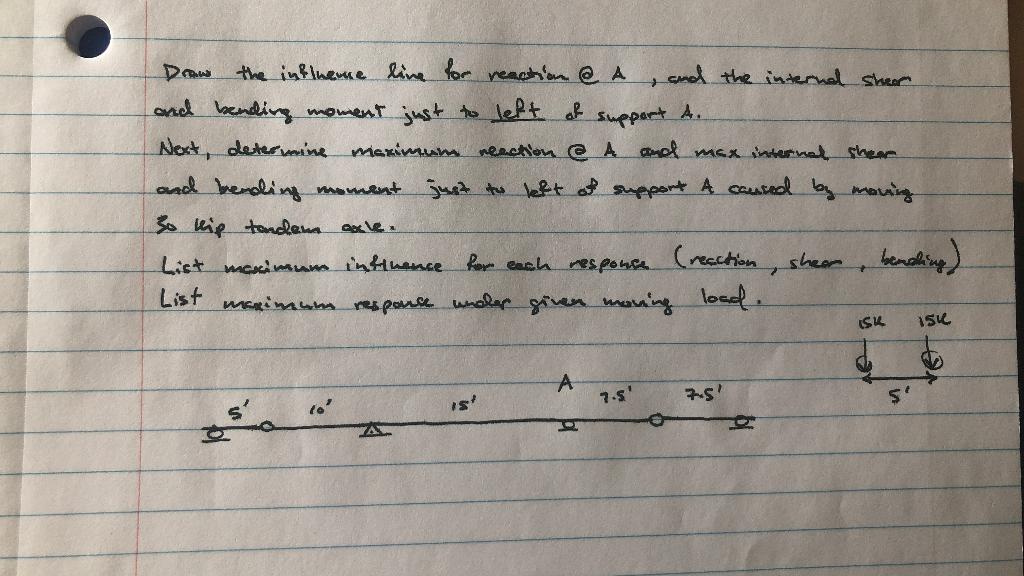 Draw the influence line for reaction @ A , and the internal shear
and bending moment just to left of support A.
Next, determine maximum reaction @ A and max internal shear
and bending moment just to left of support A caused by moving
30 kip tandem axle.
List maximum influence for each response (reaction, shear, bending)
List maximum response under given moving load.
15K 15K
5'
A
5' 10' 15' 7.5' 7.5'